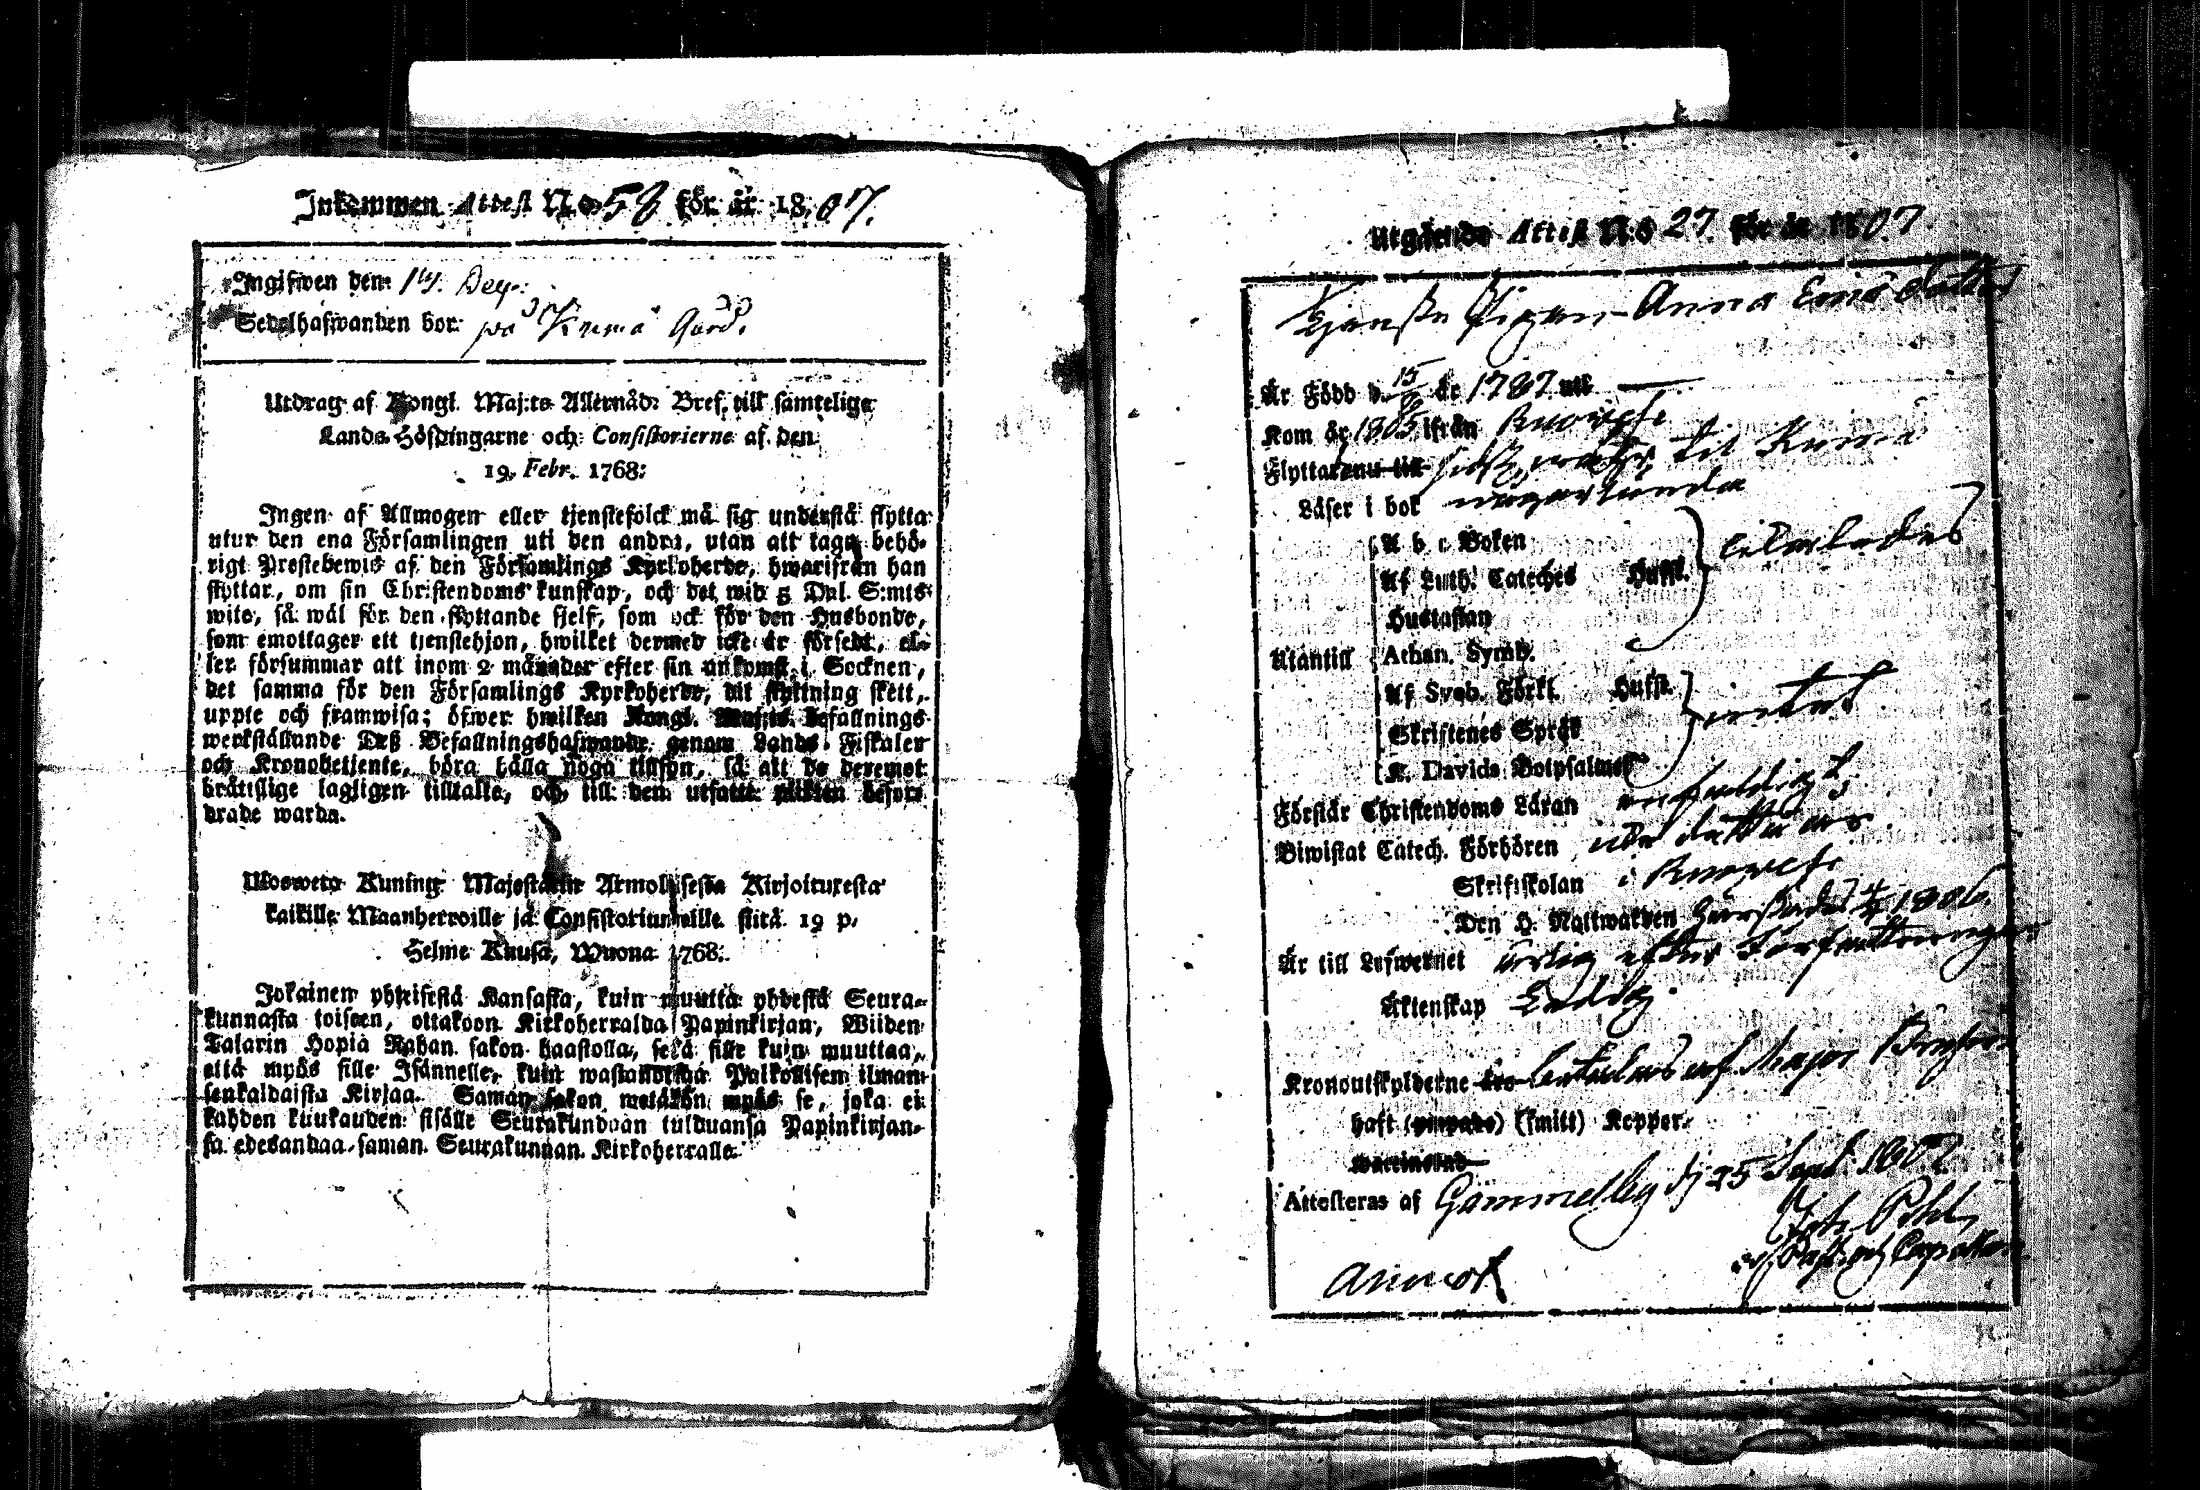 Inkommen Attest N:o 58 för år 1807.
Ingifwen den: 14. Dec:
Sedelhafwanden bor: på Kuma Gård.
Utdrag af Kongl. Maj:ts Allernåd: Bref, till samtelige
Lands-Höfdingarne och Consistorierne af den
19. Febr. 1768:
Ingen af Allmogen eller tjenstefolck må sig understå flytta
utur den ena Församlingen uti den andra, utan att taga behö-
rigt Prestebewis af den Församlings Kyrkoherde, hwarifrån han
flyttar, om sin Christendoms kunskap, och det wid 5 Dal. S:mts
wite, så wäl för den flyttande sjelf, som ock för den Husbonde,
som emottager ett tjenstehjon, hwilket dermed icke är försedt, el-
ler försummar att inom 2 månader efter sin ankomst i Socknen,
det samma för den Församlings Kyrkoherde, dit flyttning skett,
uppte och framwisa; öfwer hwilken Kongl. Maj:ts befallnings
werkställande Deß Befallningshafwande genom Lands-Fiskaler
och Kronobetjente, böra hålla noga tillsyn, så att de deremot
bråttslige lagligen tilltalte, och till den utsatte plikten befor-
drade warda.
Ulosweto Kuning. Majestätin Armollisesta Kirjoituxesta
kaikille Maanherroille ja Consistoriumeille siitä 19 p.
Helme Kuusa, Wuona 1768.
Jokainen yhteisestä Kansasta, kuin muutta yhdestä Seura-
kunnasta toiseen, ottakoon Kirkoherralda Papinkirjan, Wiiden
Talarin Hopia Rahan sakon haastolla, sekä sille kuin muuttaa,
että myös sille Isännelle, kuin wastanottaa Palkollisen ilman
senkaldaista Kirjaa. Saman sakon wetäkön myös se, joka ei
kahden kuukauden sisälle Seurakundaan tulduansa Papinkirjan-
sa edesandaa saman Seurakunnan Kirkoherralle.
Utgående Attest N:o 27 för år 1807.
Tjenste Pigan Anna Eriks dotter
Är Född d. 15 år 1787 uti
Kom år 1805 ifrån
Flyttar nu till til Kuma
Läser i bok någorlunda
A b c Boken
Af Luth. Cateches Hufst.
Hustaflan
Utantill Athan. Symb.
Af Sveb. Förkl. Hufst. intet
Skriftenes Språk
K. Davids Botpsalmer
Förstår Christendoms Läran enfaldigt
Biwistat Catech. Förhören
Skriftskolan i
Den H. Nattwarden 1806.
Är till Lefwernet ärlig efter Författningar
Äktenskap Ledig
Kronoutskylderne betalas af Major
haft (ympade) (smitt) Kopper.
Attesteras af Gammelby d. 25 Sept. 1807
Joh. Pihl